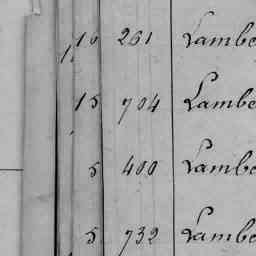 10 261 Lambe
15 704 Lambe
5 400 Lambe
5 732 Lambe